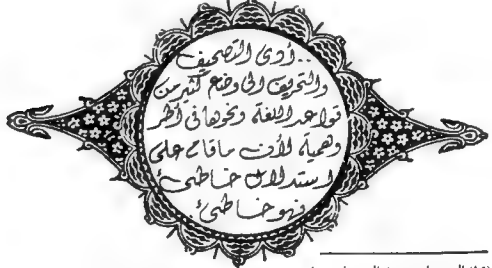 ..أدى التصحيف
والتحريف الى وضع كثير من
قواعد اللغة ونحوها في أطر
وهمية لأن ما قام على
استدلال خاطئ
فهو خاطئ.